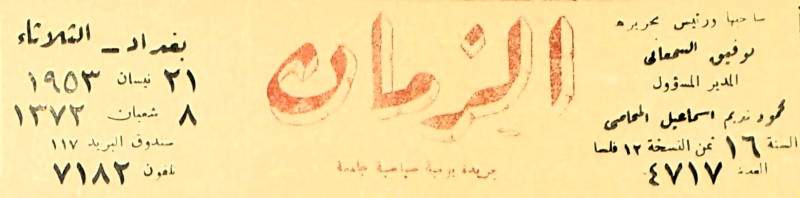 صاحبها ورئيس تحريره
توفيق السمعاني
المدير المسؤول
محمود نديم اسماعيل المحامي
السنة ١٦ ثمن النسخة ١٢ فلسا
العدد ٤٧١٧
الزمان
جريدة يومية سياسية جامعة
بغداد - الثلاثاء
٢١ نيسان ١٩٥٣
٨ شعبان ١٣٧٢
صندوق البريد ١١٧
تلفون ٧١٨٢